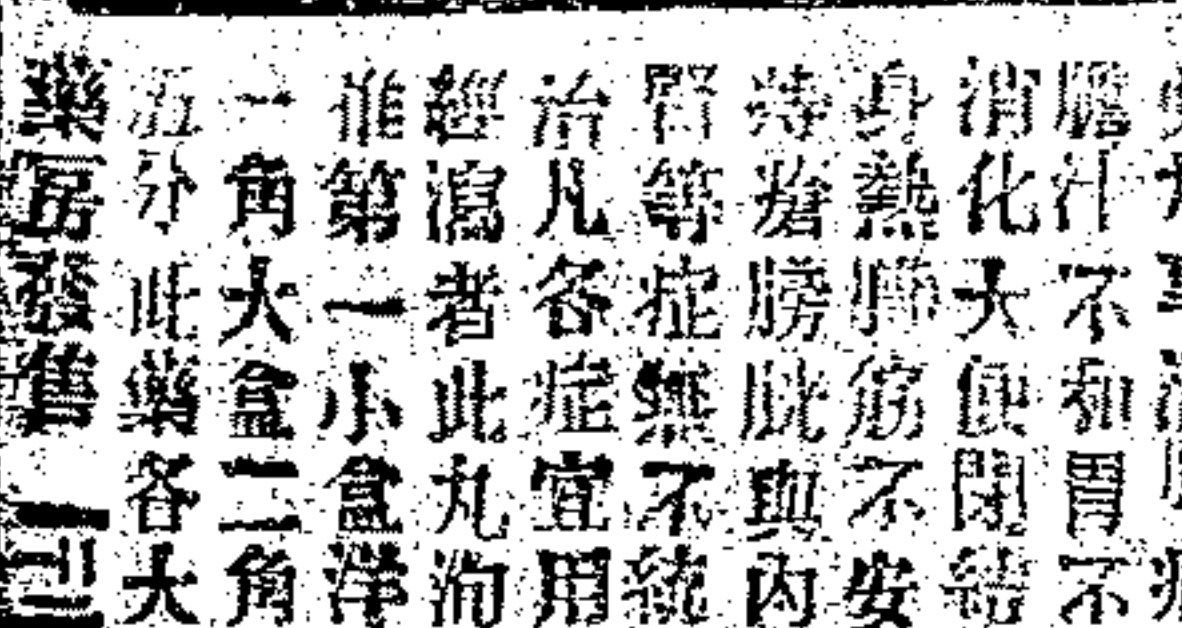 膽汁不和胃不
消化大便閉結
身熱不安
痔瘡膀胱與內
腎等症無不統
治凡各症宜用
經瀉者此丸洵
推第一小盒洋
一角大盒二角
五分此藥各大
藥房發售